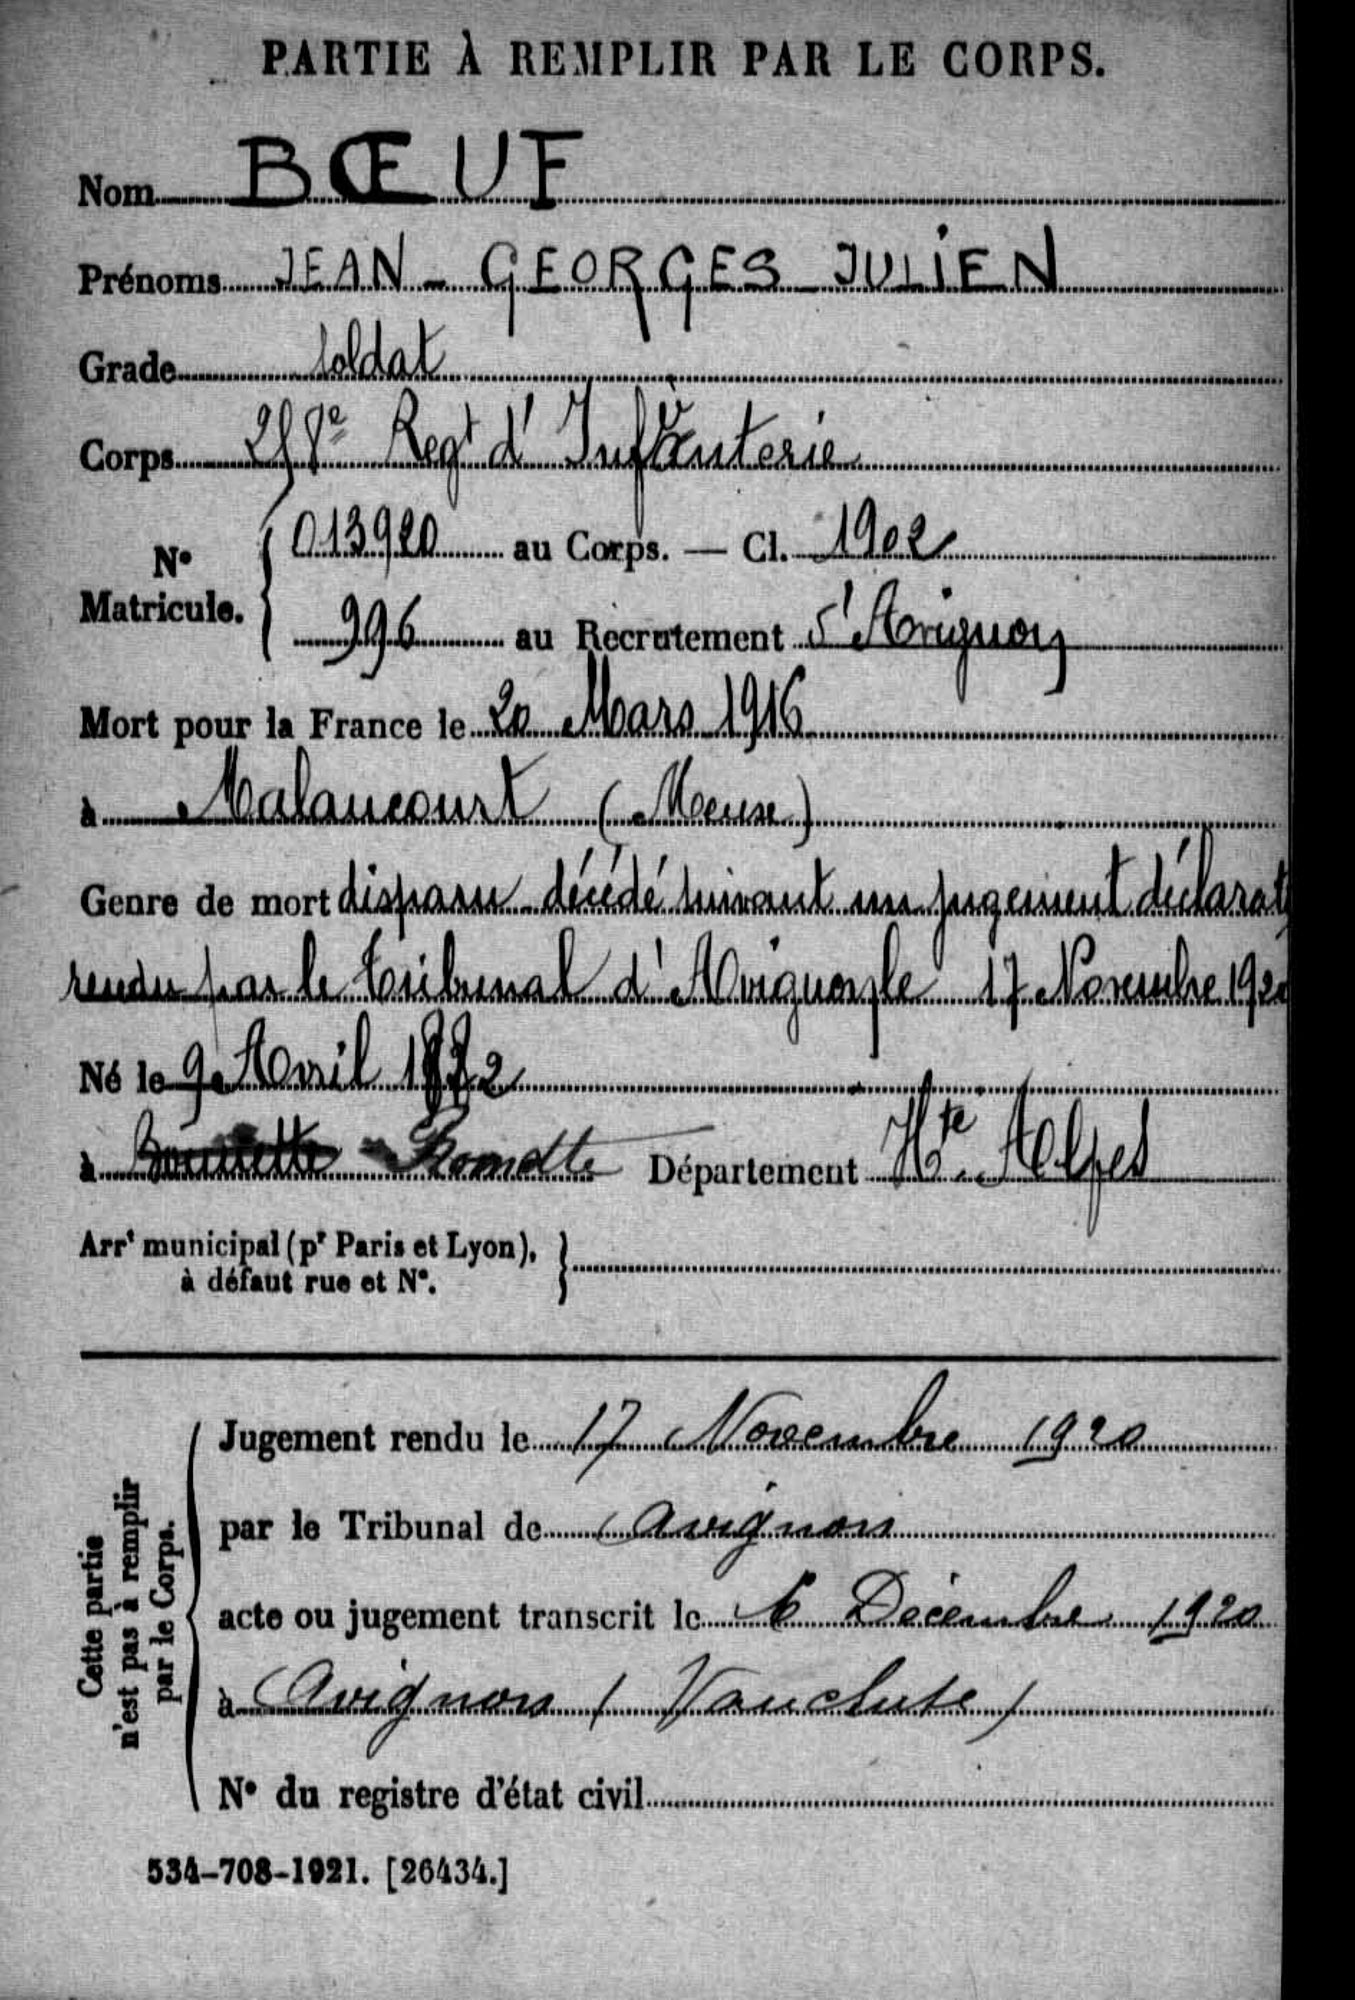 PARTIE À REMPLIR PAR LE CORPS.
Nom BŒUF
Prénoms JEAN - GEORGES JULIEN
Grade soldat
Corps 258e Regt d'Infanterie
No Matricule. { 013920 au Corps. — Cl. 1902
996 au Recrutement d'Avignon
Mort pour la France le 20 Mars 1916
à Malancourt (Meuse)
Genre de mort disparu décédé suivant un jugement déclarat
rendu par le tribunal d'Avignon le 17 Novembre 1920
Né le 9 Avril 1882
à Romette Département Hte Alpes
Arrt municipal (pr Paris et Lyon), }
à défaut rue et No.
Cette partie n'est pas à remplir par le Corps.
Jugement rendu le 17 Novembre 1920
par le Tribunal de Avignon
acte ou jugement transcrit le 6 Décembre 1920
à Avignon (Vaucluse)
No du registre d'état civil
534-708-1921. [26434.]